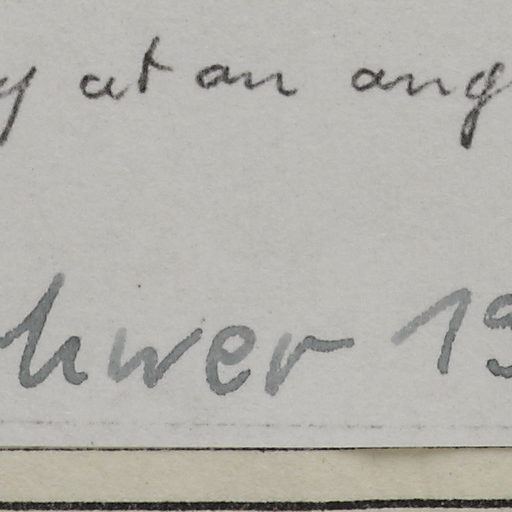 y at an ang
hwer 19